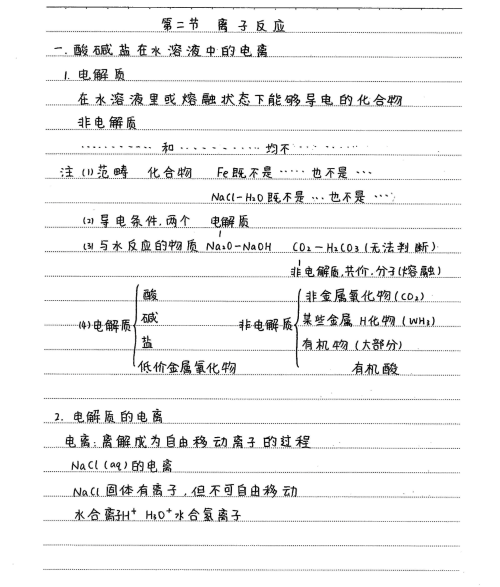 第二节 离子反应
一.酸碱盐在水溶液中的电离
1.电解质
在水溶液里或熔融状态下能够导电的化合物
非电解质
………… 和 ………… 均不 …………
注 (1)范畴 化合物 Fe既不是……也不是…
NaCl-H2O既不是…也不是…
(2)导电条件.两个 电解质
(3)与水反应的物质 Na2O-NaOH CO2-H2CO3(无法判断)
非电解质.共价.分子(熔融)
酸 非金属氧化物(CO2)
(4)电解质 碱 非电解质 某些金属 H化物(WH3)
盐 有机物(大部分)
低价金属氧化物 有机酸
2.电解质的电离
电离:离解成为自由移动离子的过程
NaCl(aq)的电离
NaCl固体有离子,但不可自由移动
水合离子H+ H3O+水合氢离子